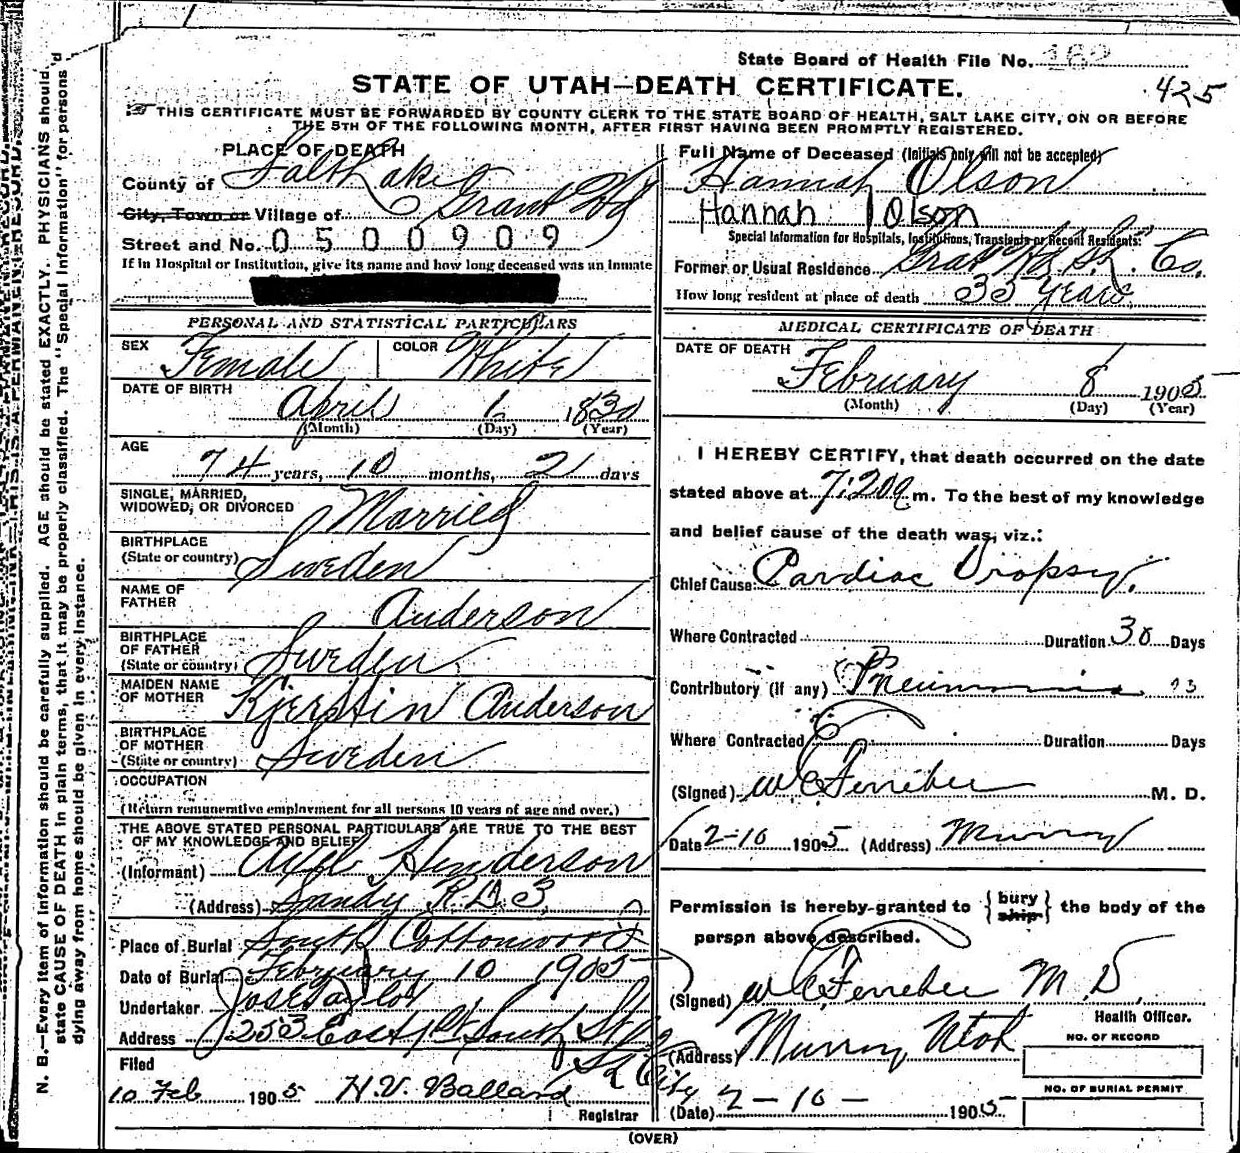 State Board of Health File No. 162
425
STATE OF UTAH—DEATH CERTIFICATE.
☞ THIS CERTIFICATE MUST BE FORWARDED BY COUNTY CLERK TO THE STATE BOARD OF HEALTH, SALT LAKE CITY, ON OR BEFORE
THE 5TH OF THE FOLLOWING MONTH, AFTER FIRST HAVING BEEN PROMPTLY REGISTERED.
PLACE OF DEATH
County of Salt Lake
City, Town or Village of Grant Wd
Street and No. 0 5 0 0 9 0 9
If in Hospital or Institution, give its name and how long deceased was an inmate
PERSONAL AND STATISTICAL PARTICULARS
SEX Female COLOR White
DATE OF BIRTH April 1830
(Month) (Day) (Year)
AGE 74 years, 10 months, 2 days
SINGLE, MARRIED,
WIDOWED, OR DIVORCED Married
BIRTHPLACE
(State or country) Sweden
NAME OF
FATHER Anderson
BIRTHPLACE
OF FATHER
(State or country) Sweden
MAIDEN NAME
OF MOTHER Kjerstin Anderson
BIRTHPLACE
OF MOTHER
(State or country) Sweden
OCCUPATION
(Return remunerative employment for all persons 10 years of age and over.)
THE ABOVE STATED PERSONAL PARTICULARS ARE TRUE TO THE BEST
OF MY KNOWLEDGE AND BELIEF
(Informant) Henderson
(Address) Sandy R.D. 3
Place of Burial South Cottonwood
Date of Burial February 10 1905
Undertaker Jos E Taylor
Address 253 East 1st South St
S L City
Filed
10 Feb 1905 H.V. Ballard
Registrar
Full Name of Deceased (Initials only will not be accepted)
Hannah Olson
Hannah Olson
Special Information for Hospitals, Institutions, Transients or Recent Residents:
Former or Usual Residence Grat Wd S.L. Co.
How long resident at place of death 35 Years
MEDICAL CERTIFICATE OF DEATH
DATE OF DEATH
February 8 1905
(Month) (Day) (Year)
I HEREBY CERTIFY, that death occurred on the date
stated above at 7:20 a m. To the best of my knowledge
and belief cause of the death was, viz.:
Chief Cause: Cardiac Dropsy.
Where Contracted Duration 30 Days
Contributory (if any) Pneumonia 93
Where Contracted Duration Days
(Signed) M. D.
Date 2-10 1905. (Address) Murray
Permission is hereby granted to {bury ship} the body of the
person above described.
(Signed) M.D.
Health Officer.
(Address) Murray Utah
NO. OF RECORD
NO. OF BURIAL PERMIT
(Date) 2-10- 1905
(OVER)
N. B.—Every item of information should be carefully supplied. AGE should be stated EXACTLY. PHYSICIANS should
state CAUSE OF DEATH in plain terms, that it may be properly classified. The "Special Information" for persons
dying away from home should be given in every instance.